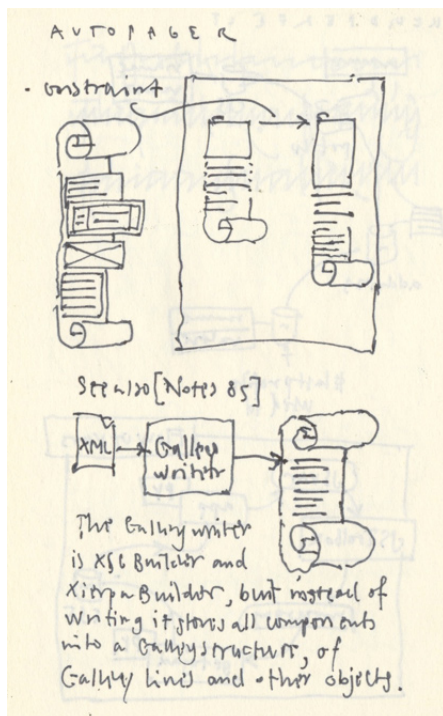 AUTOPAGER
· Constraint
See also [Notes 85]
XML
Galley
writer
The Galley writer
is XSC Builder and
Xierpa Builder, but instead of
writing it stores all components
into a Galley structure, of
Galley Lines and other objects.